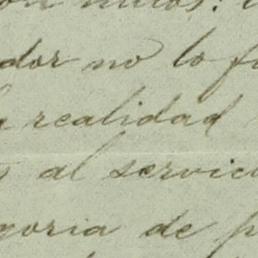 dor no lo f
realidad
al servic
goria de p